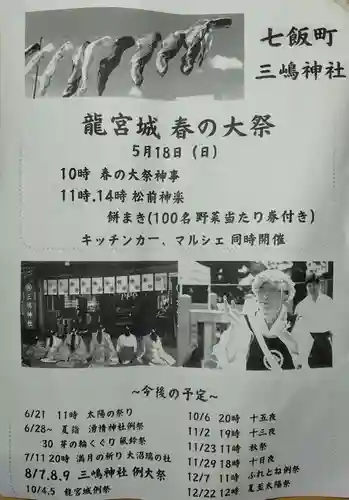 七飯町
三嶋神社
龍宮城 春の大祭
5月18日（日）
10時 春の大祭神事
11時.14時 松前神楽
餅まき(100名 野菜当たり券付き)
キッチンカー、マルシェ 同時開催
三嶋神社
~今後の予定~
6/21 11時 太陽の祭り
6/28~ 夏詣 湧積神社例祭
30 茅の輪くぐり 祓鈴祭
7/11 20時 満月の祈り 大沼瑞の社
8/7.8.9 三嶋神社 例大祭
10/4.5 龍宮城例祭
10/6 20時 十五夜
11/2 19時 十三夜
11/23 11時 秋祭
11/29 18時 十日夜
12/7 11時 ふれとね例祭
12/22 12時 夏至太陽祭